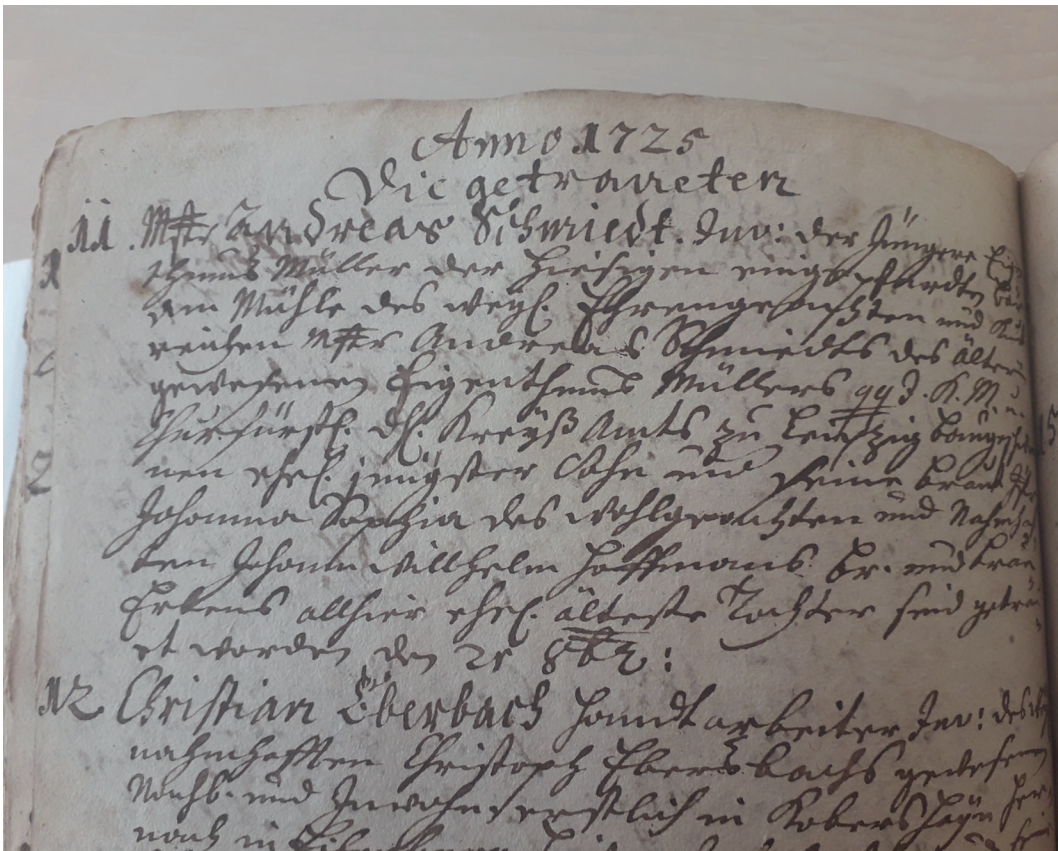 Anno 1725
Die getraueten
11. Mstr Andreas Schmiedt. Juv: der Jüngere
thums Müller der hiesigen eingepfardten
am Mühle des weyl. Ehrengeachten und
reichen Mstr Andreas Schmiedts des ältern
gewesenen Eigenthums Müllers K. M. u.
Churfürstl. Kreyß Amts zu Leipzig
nen ehel. jüngster Sohn und seine braut
Johanna Sophia des wohlgeachten und
ten Johann Willhelm Hoffmanns br. und
Erbens allhier ehel. älteste Tochter sind getrau
et worden den 8br:
12 Christian Eberbach Handtarbeiter Juv: des
nahmhafften Christoph Ebersbachs gewesenen
Nachb. und Inwohners erstlich in Kobershayn
nach in